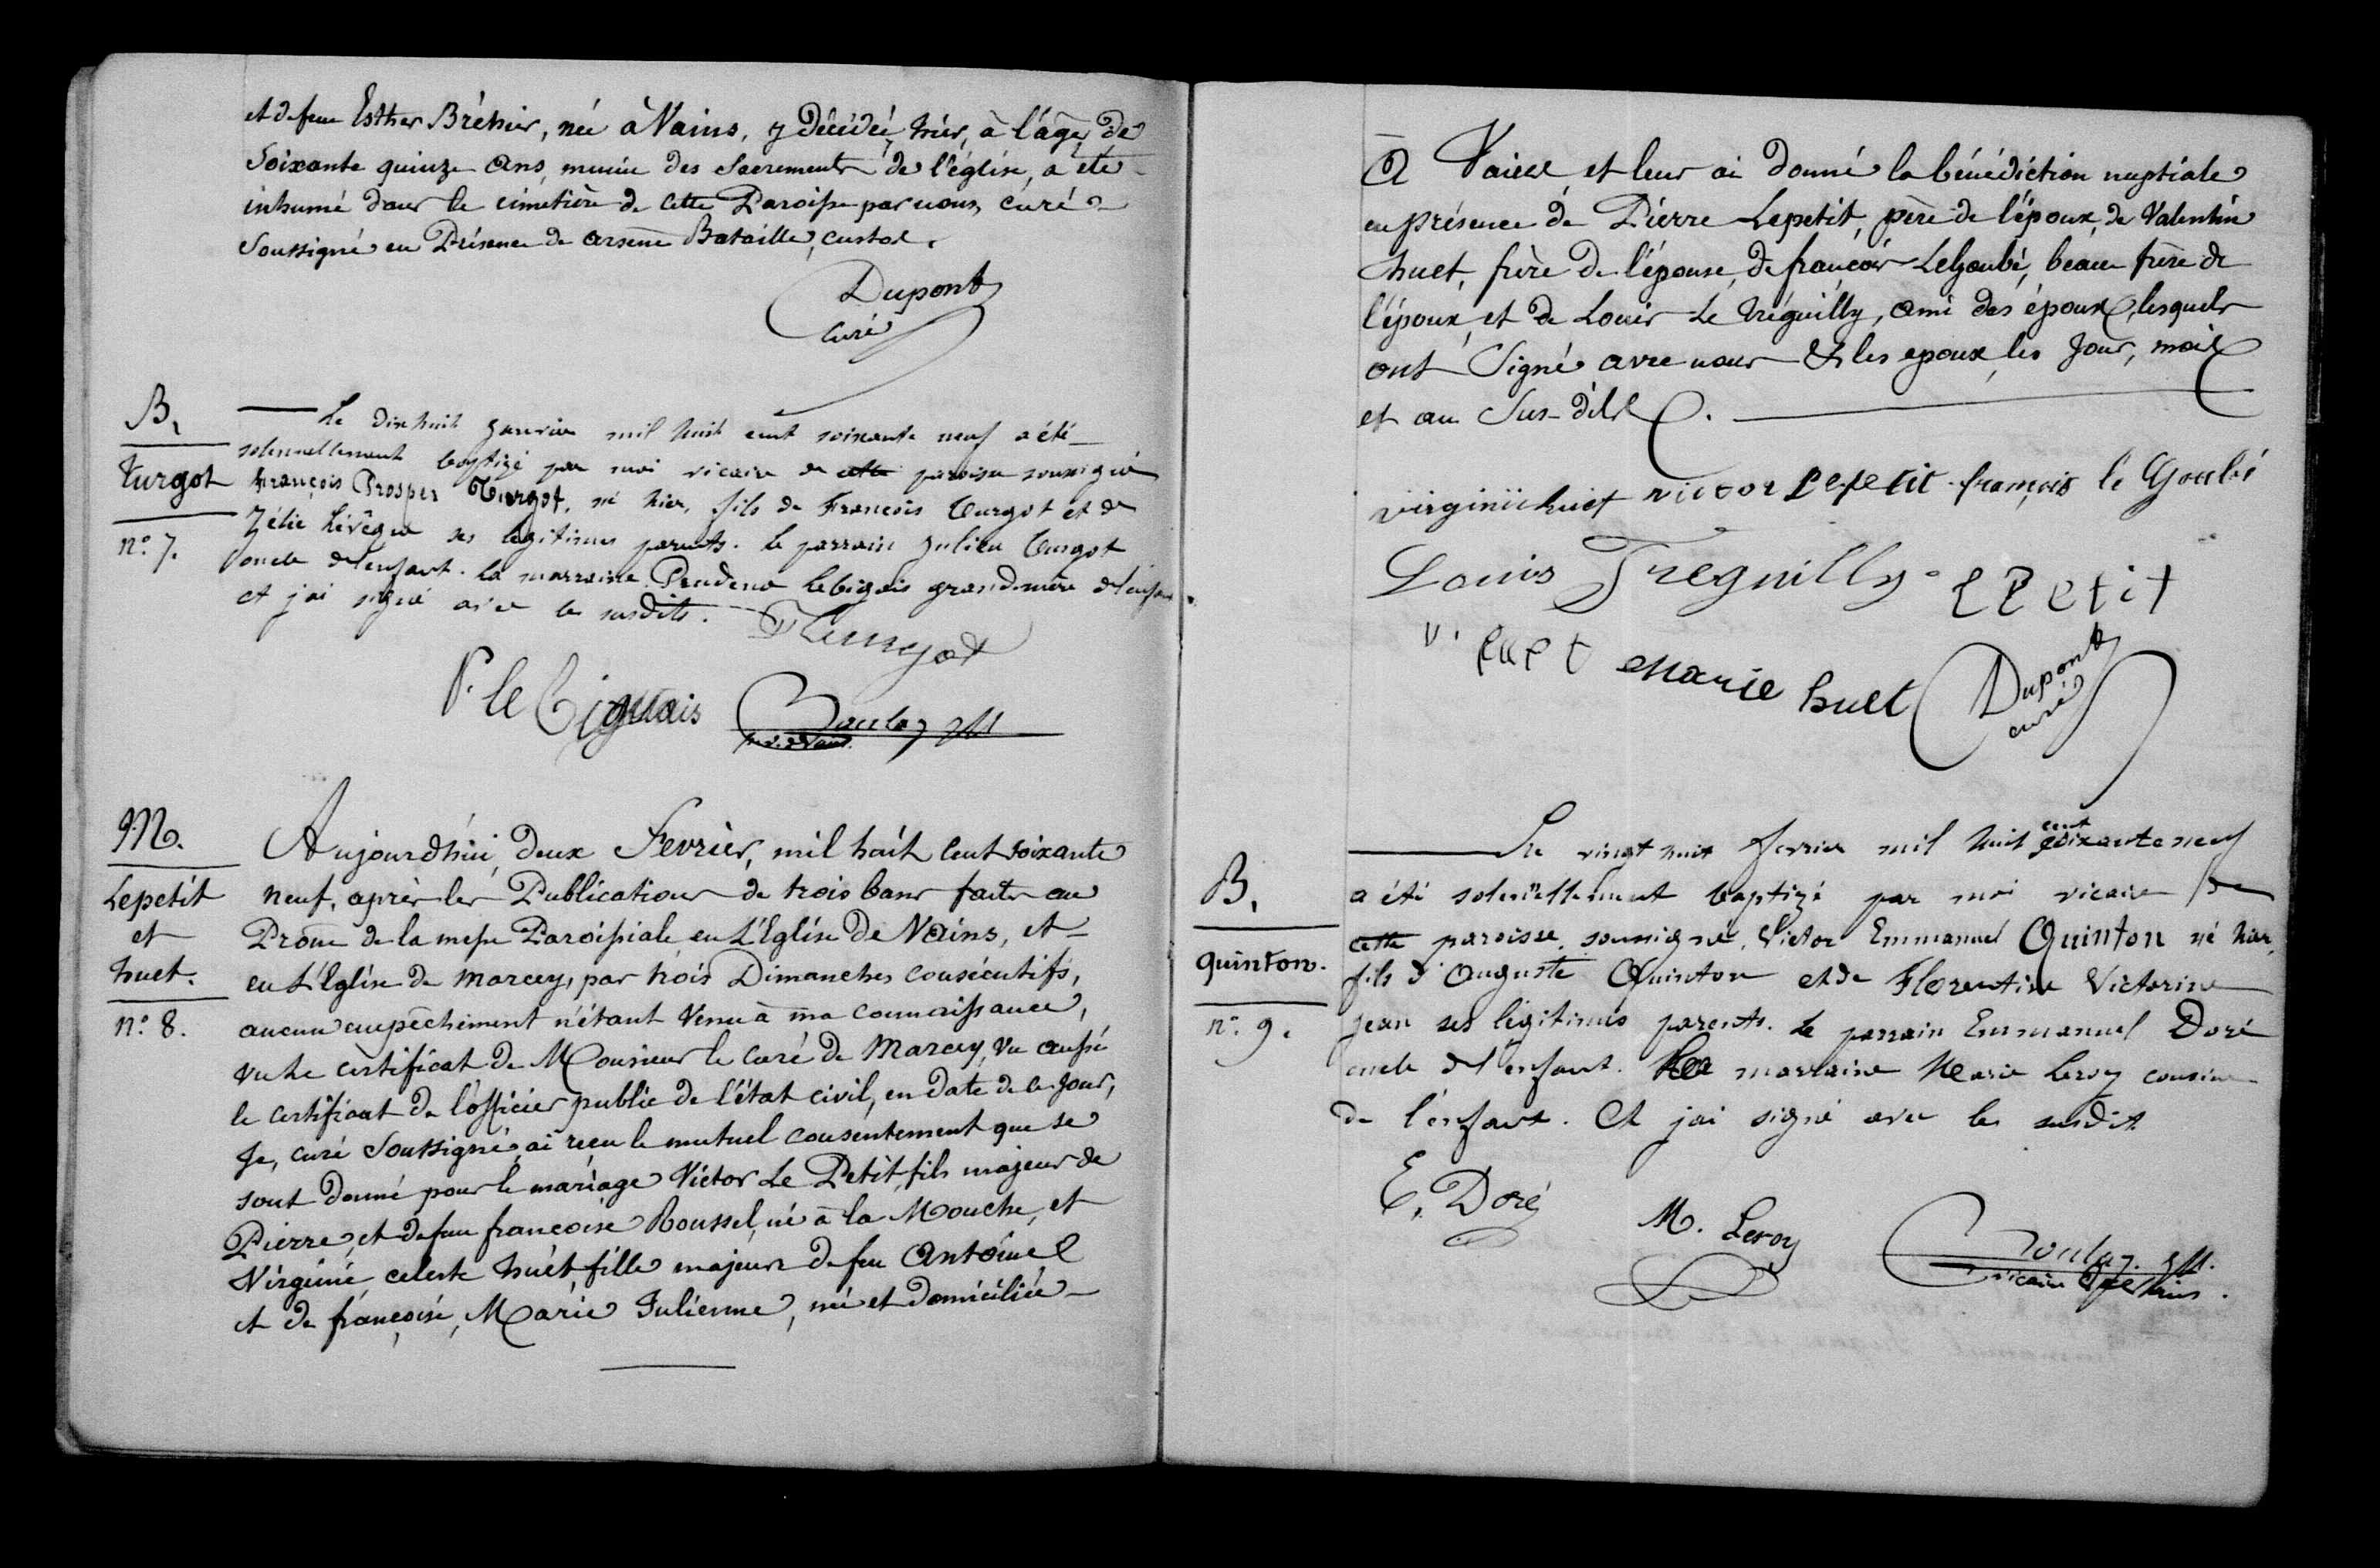 et de feue Esther Bréhier, née à Vains, y décédée, hier, à l'âge de
Soixante quinze ans, munie des Sacrements de l'église, a été
inhumé dans le cimetière de cette Paroisse par nous, curé
Soussigné en Présence de arsène Bataille, custos.
Dupont
curé
B.
Turgot
n° 7.
Le dix huit janvier mil huit cent soixante neuf a été
solennellement baptizé par moi vicaire de cette paroisse soussigné
François Prosper Turgot, né hier, fils de François Turgot et de
Zélie Lévêque ses légitimes parents. le parrain Julien Turgot
oncle de l'enfant. la marraine Prudence Lebigois grandmère de l'enfant
et j'ai signé avec les susdits.
P. le Biguais
Boulay
M.
Lepetit
et
huet.
n° 8.
Aujourd'hui, deux Fevrier, mil huit cent soixante
neuf, après les Publications de trois bans faites au
Prône de la messe Paroissiale en L'Eglise de Vains, et
en L'Eglise de Marcey, par trois Dimanches consécutifs,
aucun empêchement n'étant Venu à ma connaissance,
vu le certificat de Monsieur le curé de Marcey, vu aussi
le certificat de l'officier public de l'état civil, en date de ce Jour,
Je, curé Soussigné, ai reçu le mutuel consentement que se
sont donné pour le mariage Victor Le Petit, fils majeur de
Pierre, et de feue françoise Roussel, né à la Mouche, et
Virginie, celeste huet, fille majeure de feu Antoine
et de françoise, Marie Julienne, née et domiciliée
à Vains et leur ai donné la bénédiction nuptiale
en présence de Pierre Lepetit, père de l'époux, de Valentin
huet, frère de l'épouse, de françois Lejoubé, beau frère de
l'époux, et de Louis Le Tréguilly, ami des époux, lesquels
ont Signé avec nous & les epoux, les Jour, mois
et an Sus-dits.
virginie huet victor Lepetit françois le Goubé
Louis Treguilly. LPetit
V. huet Marie huet Dupont
curé
B.
quinton.
n° 9.
Le vingt huit fevrier mil huit cent soixante neuf
a été solennellement baptizé par moi vicaire de
cette paroisse, soussigné, Victor Emmanuel Quinton né hier,
fils d'Auguste Quinton et de Florentine Victorine
jean ses légitimes parents. Le parrain Emmanuel Doré
oncle de l'enfant. La marraine Marie Leroy cousine
de l'enfant. Et j'ai signé avec les susdits
E. Doré
M. Leroy
Boulay
vicaire de Vains.